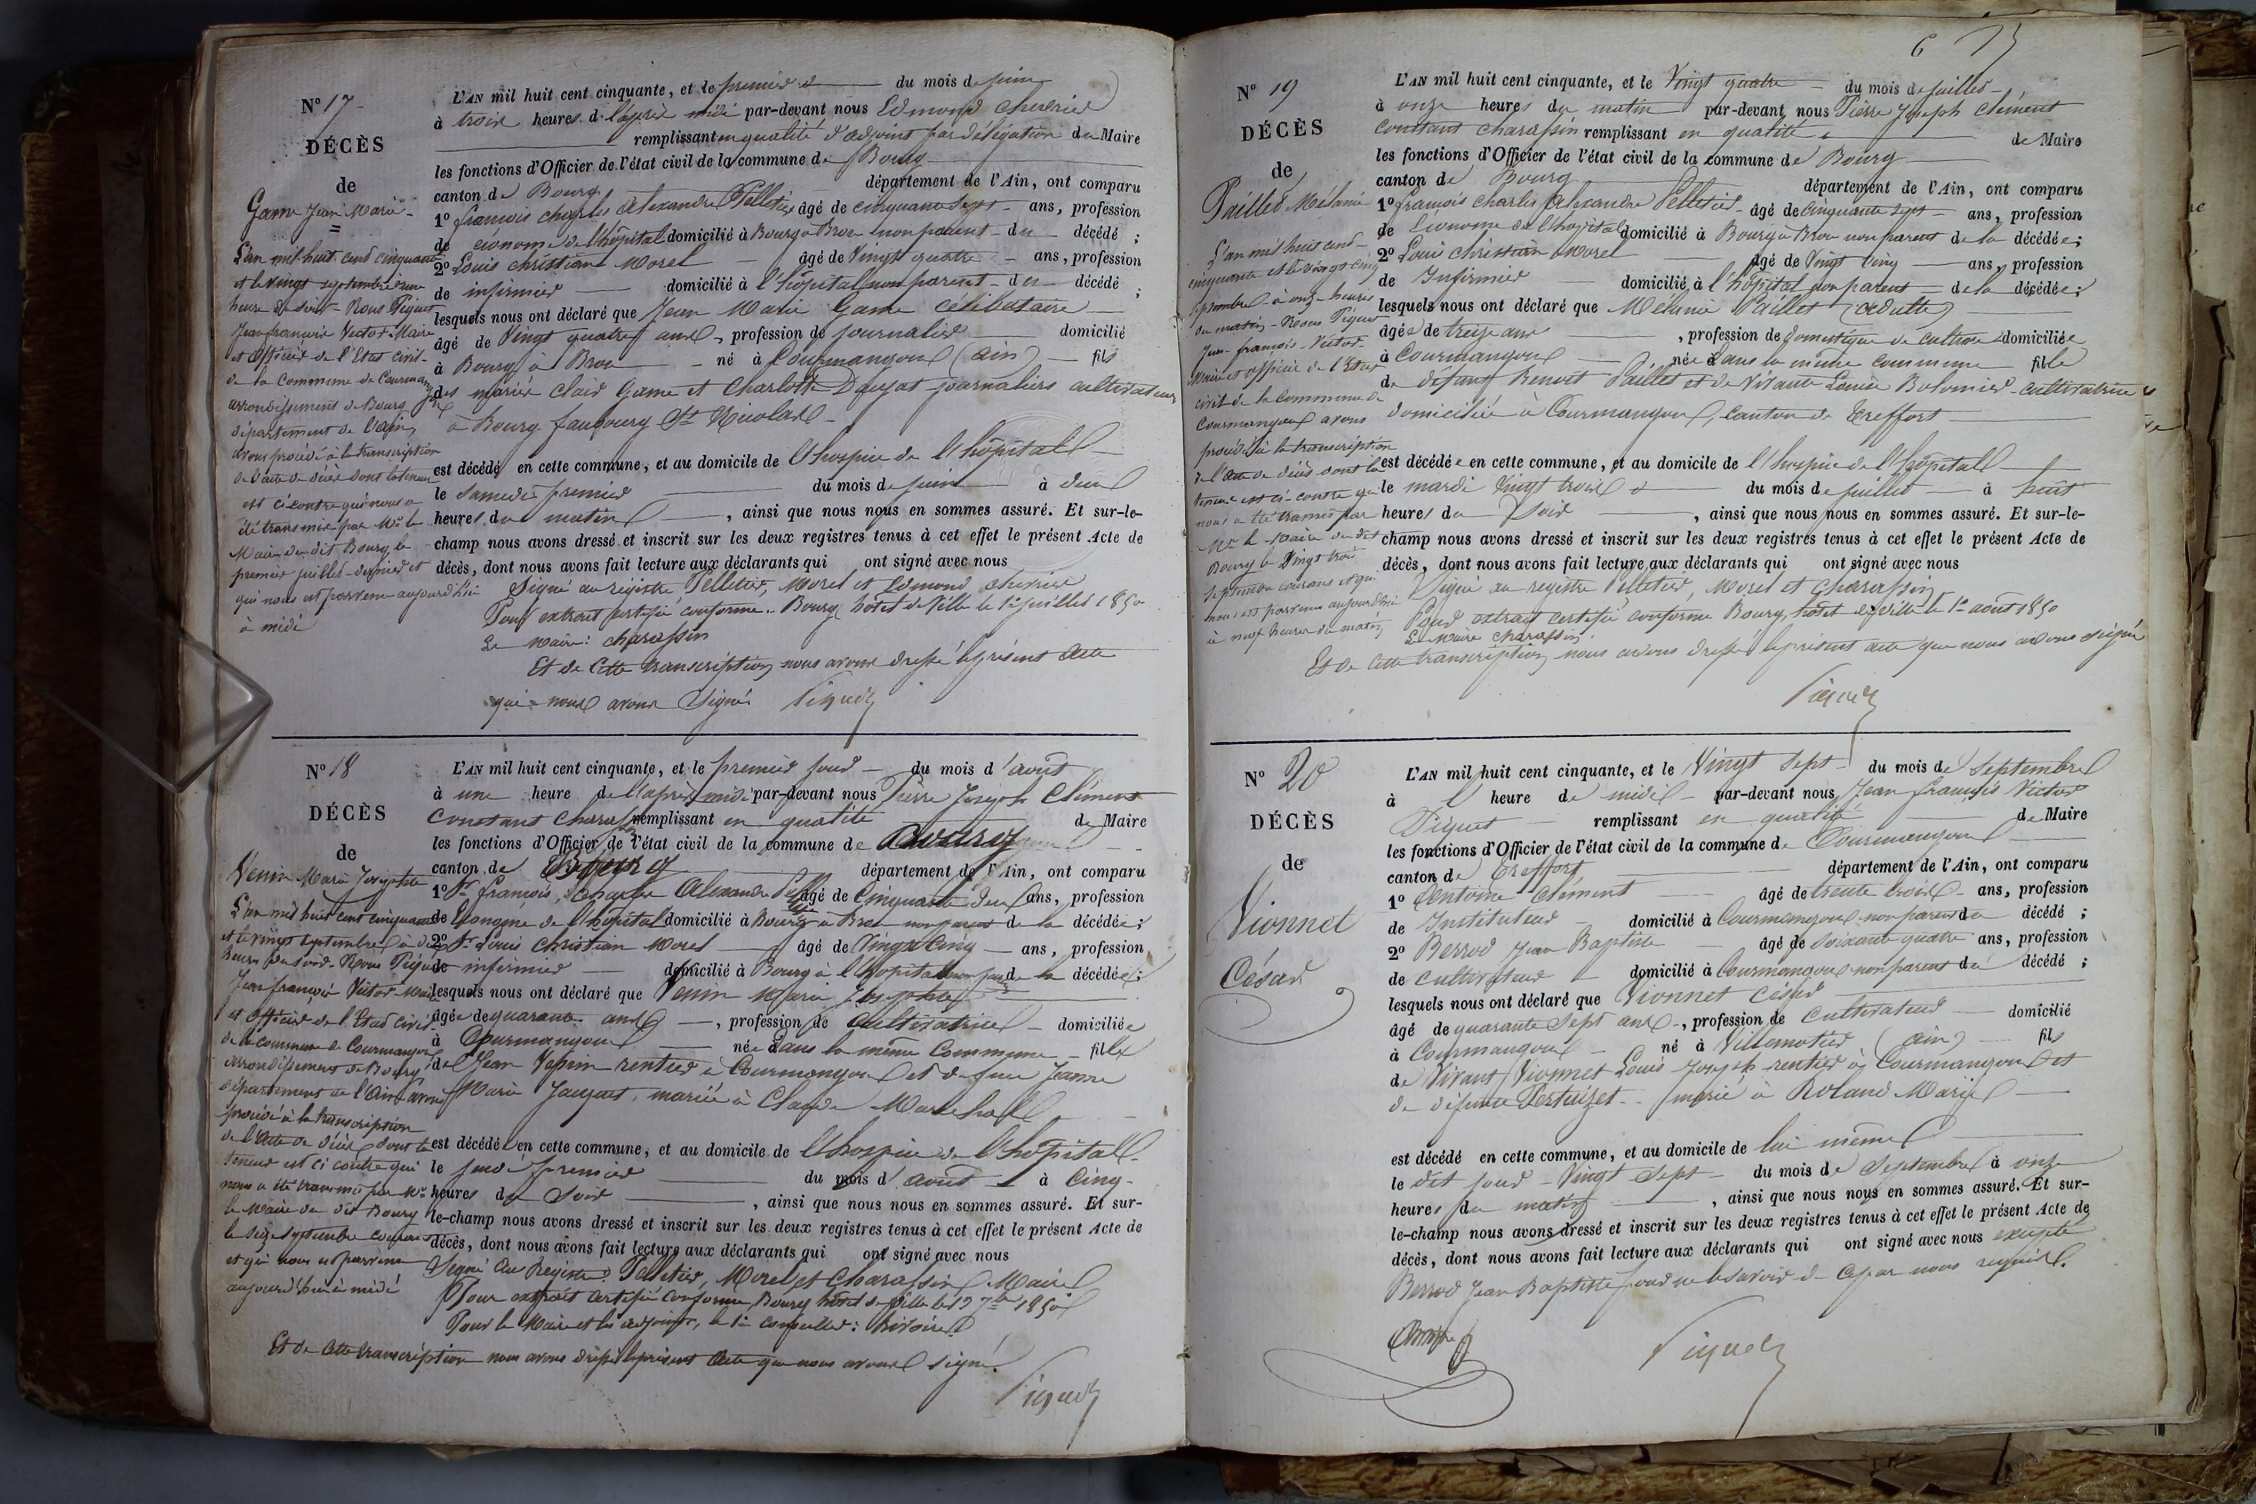 Nº 17
DÉCÈS
de
Game Jean Marie
L'an mil huit cent cinquante
et le vingt septembre à une
heure du soir Nous Piquet
Jean françois Victor Maire
et officier de l'Etat civil
de la commune de Courmangoux
arrondissement de Bourg
département de l'ain,
avons procédé à la transcription
de l'acte de décès dont la teneur
est ci contre qui nous a
été transmis par Mr le
Maire du dit Bourg le
premier juillet dernier et
qui nous est parvenu aujourd'hui
à midi
L'AN mil huit cent cinquante, et le premier du mois de juin
à trois heures de l'après midi par-devant nous Edmond Chevrier
remplissant en qualité d'adjoint par délégation du Maire
les fonctions d'Officier de l'état civil de la commune de Bourg
canton de Bourg département de l'Ain, ont comparu
1º françois charles Alexandre Pelletier âgé de cinquante sept ans, profession
de économe de l'hôpital domicilié à Bourg à Brou non parent du décédé ;
2º Louis christian Morel âgé de Vingt quatre ans, profession
de infirmier domicilié à l'hôpital non parent du décédé ;
lesquels nous ont déclaré que Jean Marie Game célibataire
âgé de Vingt quatre ans, profession de journalier domicilié
à Bourg à Brou né à Courmangoux (ain) fils
des mariés clair Game et Charlotte journaliers cultivateurs
à Bourg faubourg St Nicolas
est décédé en cette commune, et au domicile de l'hospice de l'hôpital
le samedi premier du mois de juin à deux
heures du matin, ainsi que nous nous en sommes assuré. Et sur-le-
champ nous avons dressé et inscrit sur les deux registres tenus à cet effet le présent Acte de
décès, dont nous avons fait lecture aux déclarants qui ont signé avec nous
Signé au registre Pelletier, Morel et Edmond chevrier
Pour extrait certifié conforme. Bourg hôtel de ville le 1er juillet 1850
Le maire : charassin
Et de cette transcription nous avons dressé le présent acte
que nous avons signé Piquet
Nº 18
DÉCÈS
de
Venin Marie Josephte
L'an mil huit cent cinquante
et le vingt septembre à
heures du soir. Nous Piquet
Jean françois Victor Maire
et officier de l'Etat civil
de la commune de Courmangoux
arrondissement de Bourg
département de l'Ain avons
procédé à la transcription
de l'acte de décès dont la
teneur est ci contre qui
nous a été transmis par Mr
le Maire du dit Bourg
le seize septembre courant
et qui nous est parvenu
aujourd'hui à midi
L'AN mil huit cent cinquante, et le premier jour du mois d'août
à une heure de l'après midi par-devant nous Pierre Joseph Clément
Constant Charassin remplissant en qualité de Maire
les fonctions d'Officier de l'état civil de la commune de Bourg
canton de Bourg département de l'Ain, ont comparu
1º Sr françois, Charles Alexandre Pelletier âgé de Cinquante deux ans, profession
de Econome de l'hôpital domicilié à Bourg à Brou non parent de la décédée ;
2º Sr Louis Christian Morel âgé de Vingt Cinq ans, profession
de infirmier domicilié à Bourg à l'hôpital non parent de la décédée ;
lesquels nous ont déclaré que Venin Marie Josephte
âgée de quarante ans, profession de cultivatrice domiciliée
à Courmangoux née dans la même Commune fille
de Jean Venin rentier à Courmangoux et de feue Jeanne
Marie Jacquet, mariée à Claude Marechal
est décédée en cette commune, et au domicile de l'hospice de l'hôpital
le jeudi premier du mois d'août à Cinq
heures du Soir, ainsi que nous nous en sommes assuré. Et sur-
le-champ nous avons dressé et inscrit sur les deux registres tenus à cet effet le présent Acte de
décès, dont nous avons fait lecture aux déclarants qui ont signé avec nous
Signé au Registre : Pelletier, Morel et Charassin Maire
Pour extrait certifié conforme Bourg hôtel de ville le 12 7bre 1850
Pour le Maire et les adjoints, le 1er conseiller :
Et de cette transcription nous avons dressé le présent acte que nous avons signé.
Piquet
6
Nº 19
DÉCÈS
de
Paillet Mélanie
L'an mil huit cent
cinquante et le vingt cinq
septembre à onze heures
du matin Nous Piquet
Jean françois Victor
Maire et officier de l'Etat
civil de la commune de
Courmangoux avons
procédé à la transcription
de l'acte de décès dont la
teneur est ci contre qui
nous a été transmis par
Mr le Maire du dit
Bourg le Vingt trois
septembre courant et qui
nous est parvenu aujourd'hui
à neuf heures du matin
L'AN mil huit cent cinquante, et le Vingt quatre du mois de juillet
à onze heures du matin par-devant nous Pierre Joseph Clément
Constant charassin remplissant en qualité de Maire
les fonctions d'Officier de l'état civil de la commune de Bourg
canton de Bourg département de l'Ain, ont comparu
1º françois charles Alexandre Pelletier âgé de cinquante sept ans, profession
de Economme de l'hôpital domicilié à Bourg à Brou non parent de la décédée ;
2º Louis Christian Morel âgé de Vingt cinq ans, profession
de Infirmier domicilié à l'hôpital non parent de la décédée ;
lesquels nous ont déclaré que Mélanie Paillet (adulte)
âgée de treize ans, profession de domestique de culture domiciliée
à Courmangoux née dans la même commune fille
de défunt Benoit Paillet et de Vivante Louise Bolomier cultivatrice
domiciliée à Courmangoux, canton de Treffort
est décédée en cette commune, et au domicile de l'hospice de l'hôpital
le mardi Vingt trois du mois de juillet à huit
heures du Soir, ainsi que nous nous en sommes assuré. Et sur-le-
champ nous avons dressé et inscrit sur les deux registres tenus à cet effet le présent Acte de
décès, dont nous avons fait lecture aux déclarants qui ont signé avec nous
Signé au registre Pelletier, Morel et Charassin
Pour extrait certifié conforme Bourg, hôtel de ville le 1er août 1850
Le Maire charassin
Et de cette transcription nous avons dressé le présent acte que nous avons signé
Piquet
Nº 20
DÉCÈS
de
Vionnet
César
L'AN mil huit cent cinquante, et le Vingt sept du mois de septembre
à l' heure de midi par-devant nous Jean françois Victor
Piquet remplissant en qualité de Maire
les fonctions d'Officier de l'état civil de la commune de Courmangoux
canton de Treffort département de l'Ain, ont comparu
1º Antoine Clément âgé de trente trois ans, profession
de Instituteur domicilié à Courmangoux non parent du décédé ;
2º Berrod Jean Baptiste âgé de soixante quatre ans, profession
de cultivateur domicilié à Courmangoux non parent du décédé ;
lesquels nous ont déclaré que Vionnet César
âgé de quarante sept ans, profession de cultivateur domicilié
à Courmangoux né à Villemotier (ain) fils
de Vivant Vionnet Louis Joseph rentier à Courmangoux et
de défunte Pertuizet marié à Roland Marie
est décédé en cette commune, et au domicile de lui même
le dit jour Vingt sept du mois de septembre à onze
heures du matin, ainsi que nous nous en sommes assuré. Et sur-
le-champ nous avons dressé et inscrit sur les deux registres tenus à cet effet le présent Acte de
décès, dont nous avons fait lecture aux déclarants qui ont signé avec nous excepté
Berrod Jean Baptiste pour ne le savoir de ce par nous requis.
Piquet